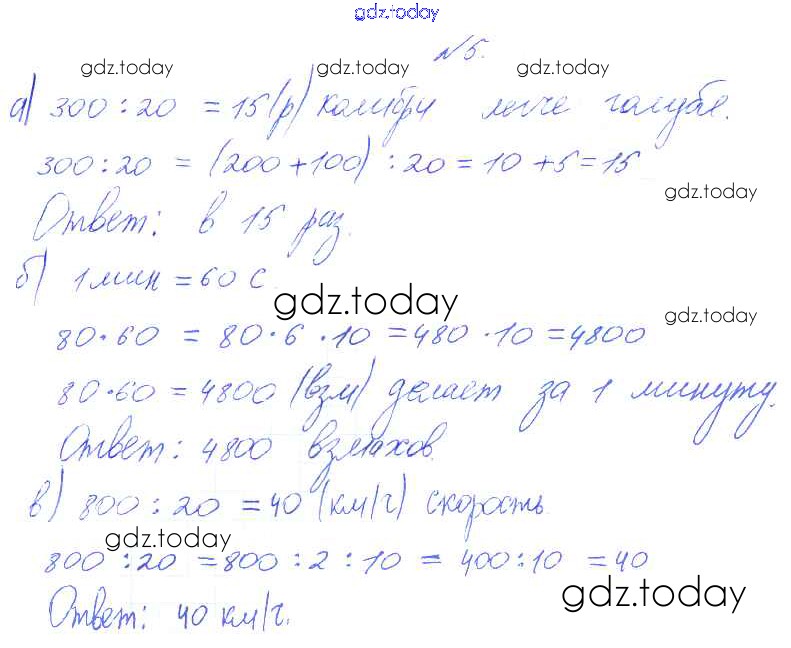 gdz.today
№5.
gdz.today gdz.today gdz.today
а) 300 : 20 = 15 (р) колибри легче голубя.
300 : 20 = (200 + 100) : 20 = 10 + 5 = 15
gdz.today
Ответ: в 15 раз.
б) 1 мин = 60 с
gdz.today gdz.today
80 · 60 = 80 · 6 · 10 = 480 · 10 = 4800
80 · 60 = 4800 (взм) делает за 1 минуту.
Ответ: 4800 взмахов.
в) 800 : 20 = 40 (км/ч) скорость
gdz.today
800 : 20 = 800 : 2 : 10 = 400 : 10 = 40
gdz.today
Ответ: 40 км/ч.